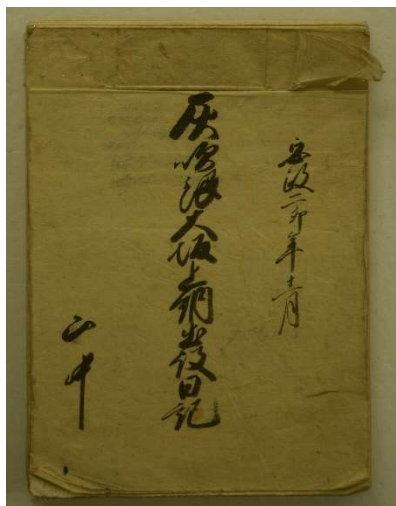 安政二卯年十一月
灰吹銀大坂上納出役日記
山中